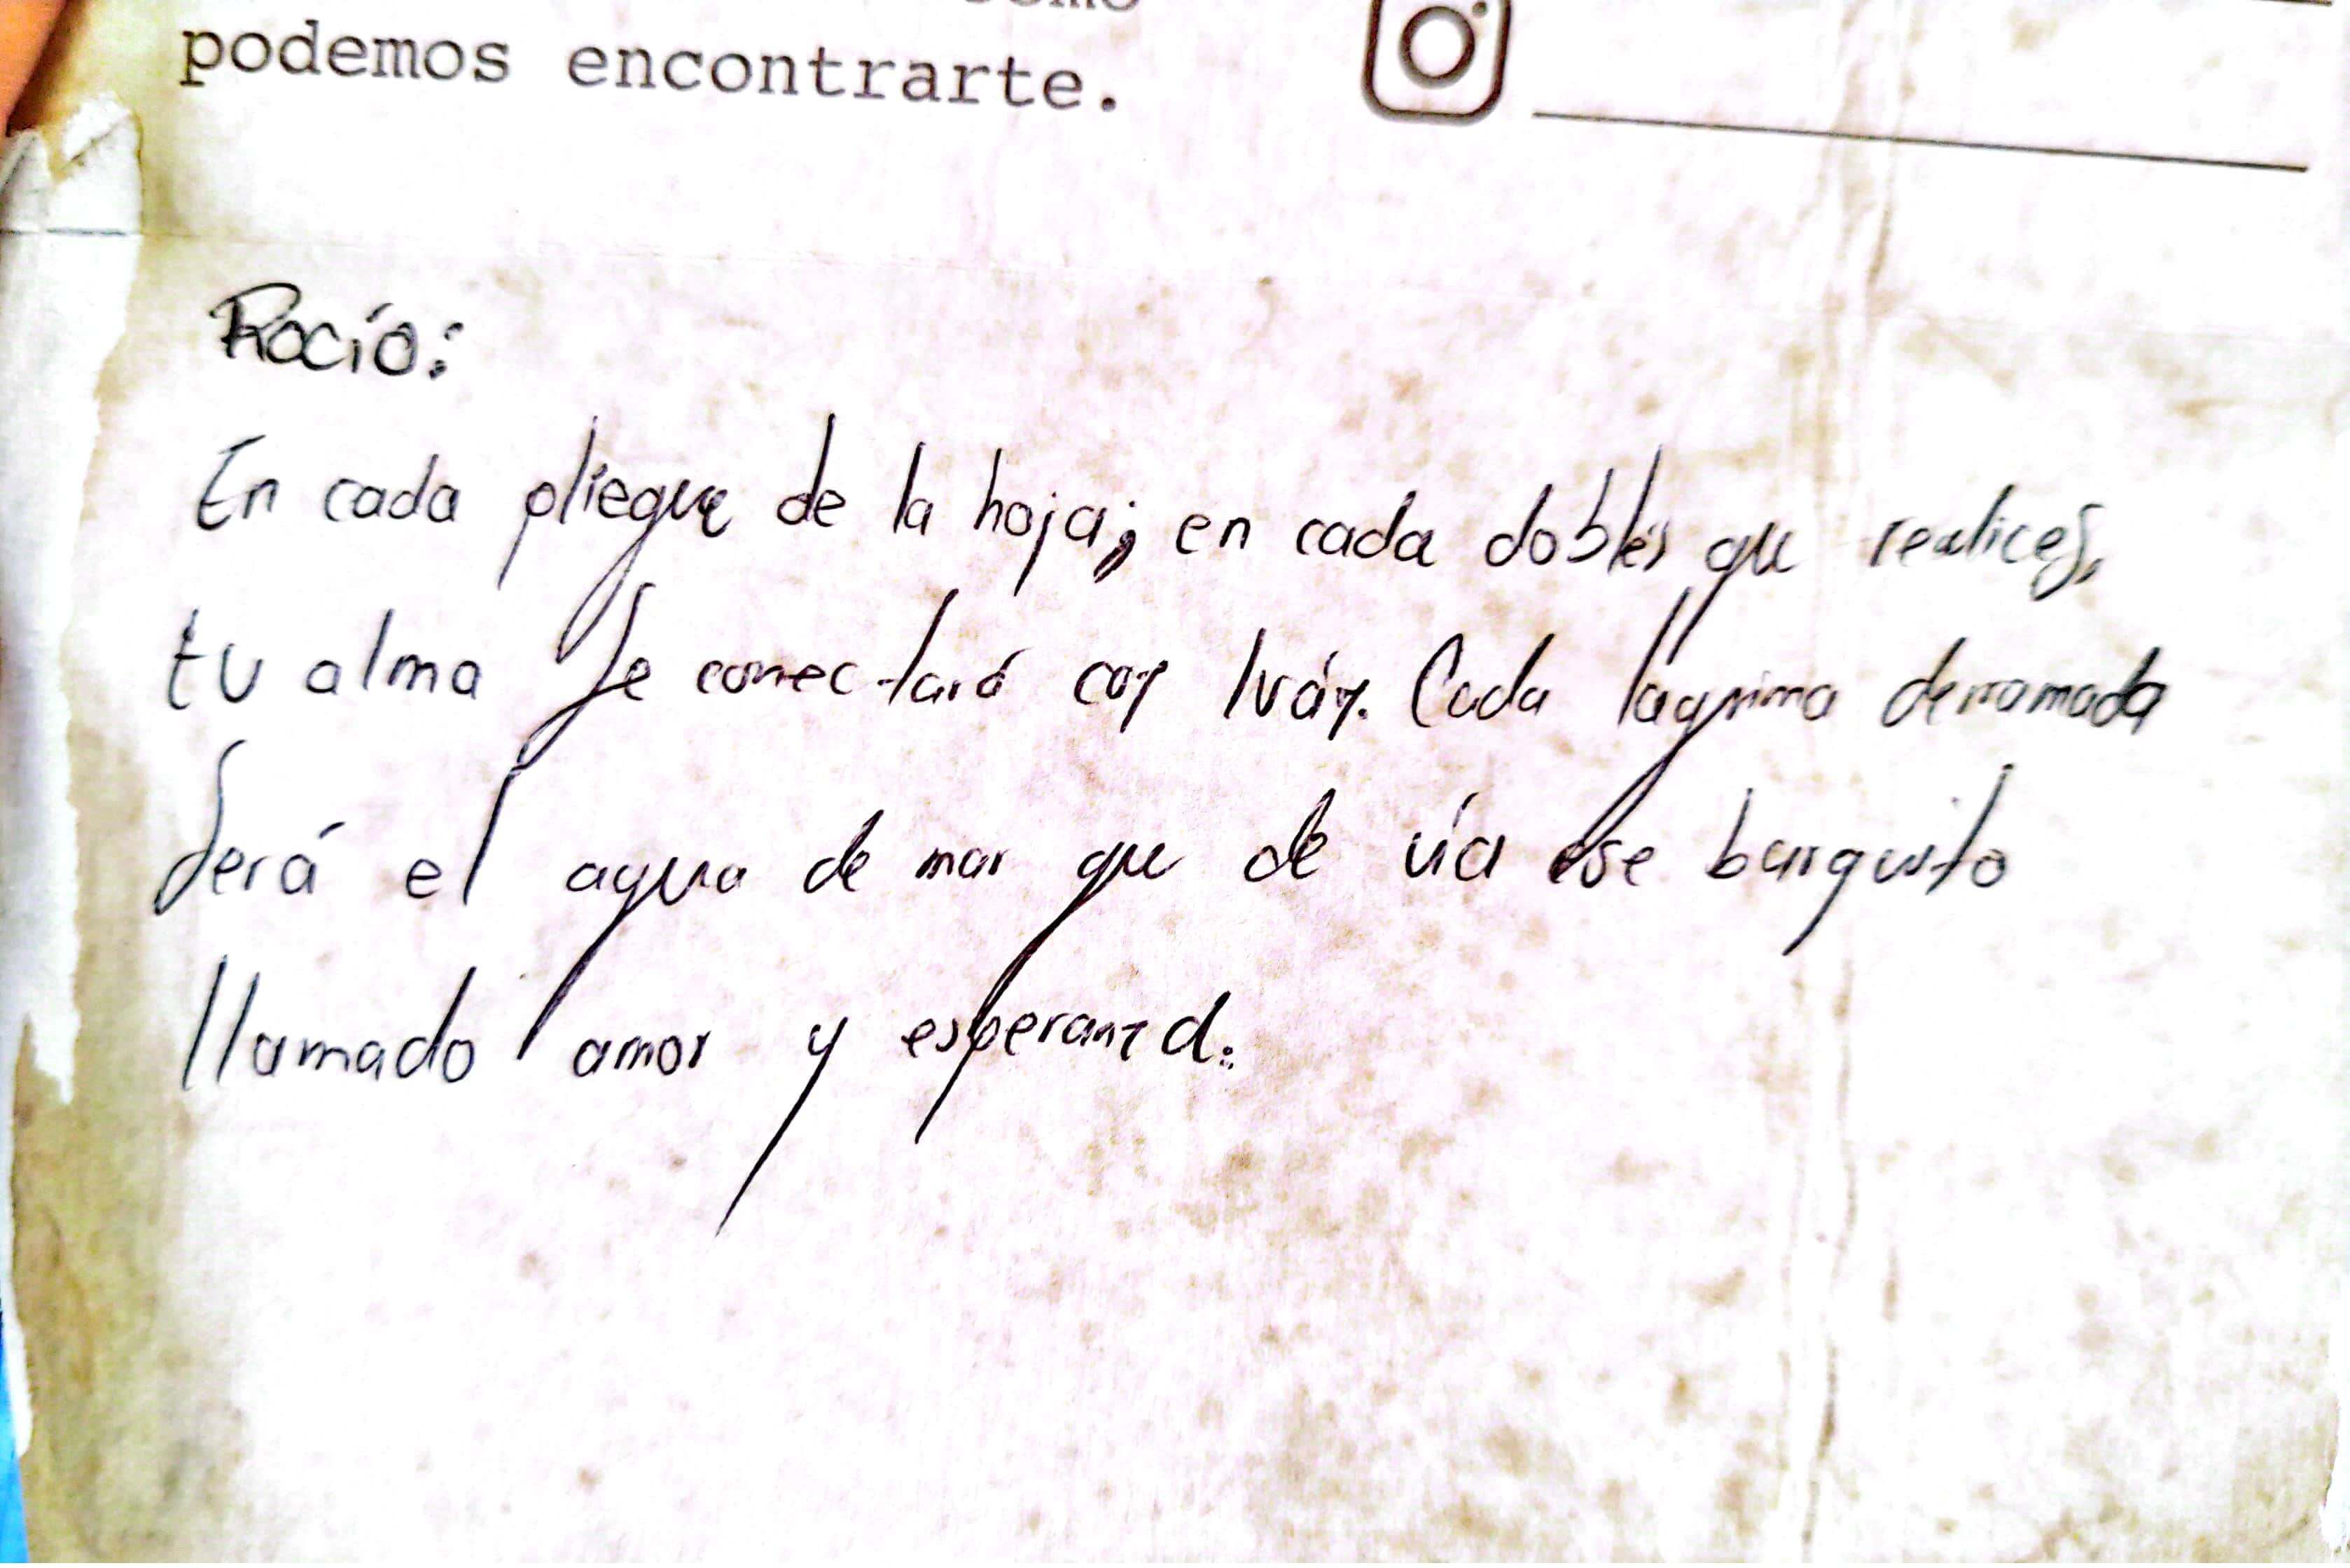 podemos encontrarte.
Rocío:
En cada pliegue de la hoja; en cada doblés que realices,
tu alma se conectará con Iván. Cada lágrima derramada
será el agua de mar que de vía ese barquito
llamado amor y esperanza.